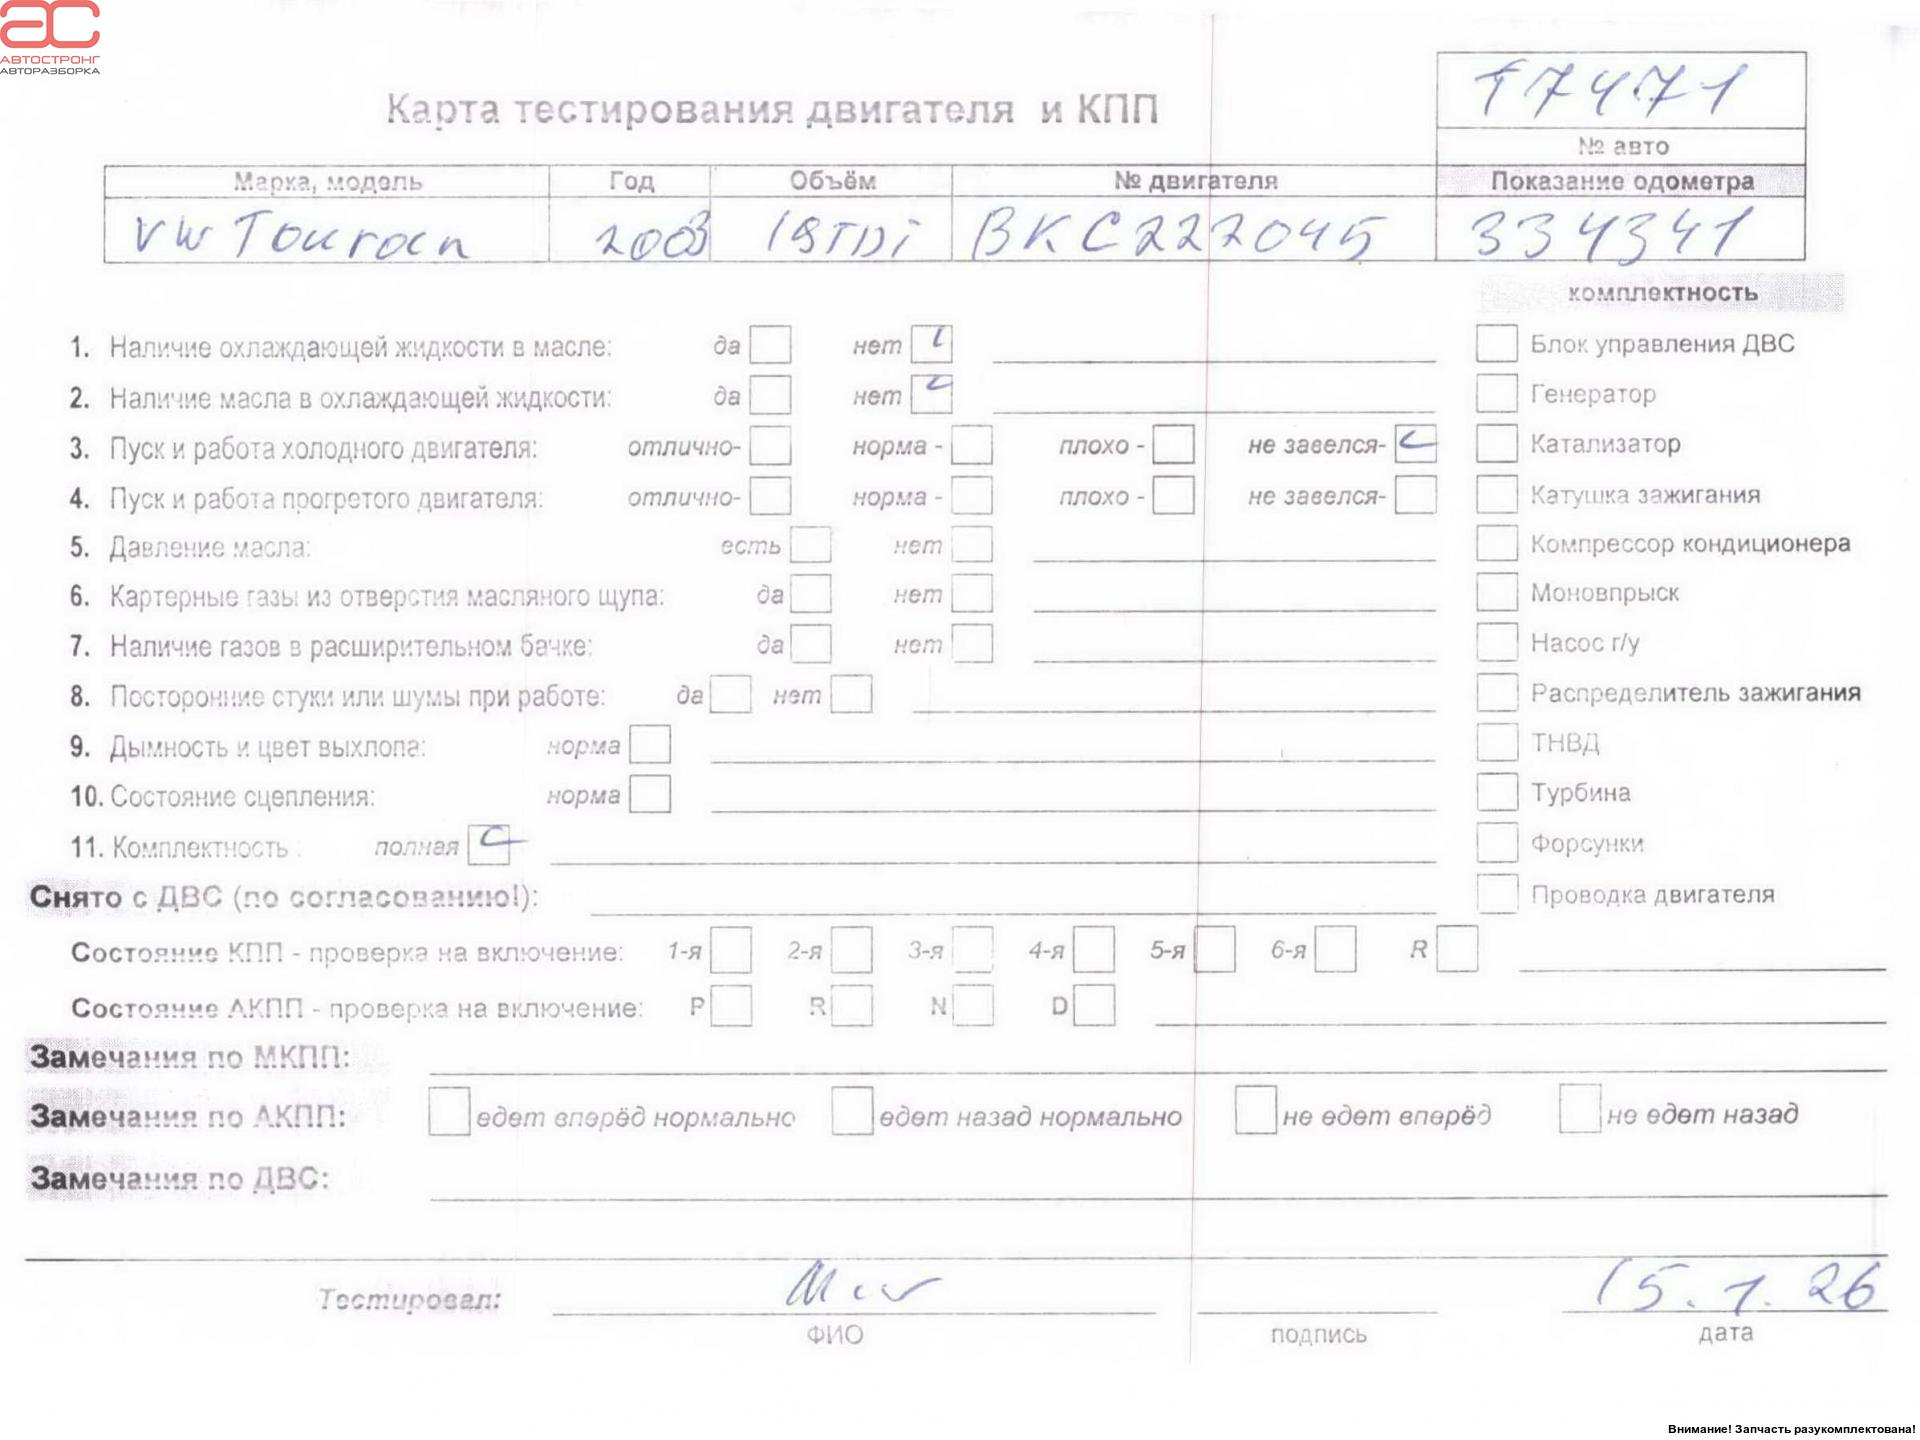 АВТОСТРОНГ
АВТОРАЗБОРКА
Карта тестирования двигателя и КПП
17471
№ авто
Марка, модель Год Объём № двигателя Показание одометра
VW Touran 2003 19TDi BKC222045 334341
комплектность
1. Наличие охлаждающей жидкости в масле: да нет Блок управления ДВС
2. Наличие масла в охлаждающей жидкости: да нет Генератор
3. Пуск и работа холодного двигателя: отлично- норма - плохо - не завелся- Катализатор
4. Пуск и работа прогретого двигателя: отлично- норма - плохо - не завелся- Катушка зажигания
5. Давление масла: есть нет Компрессор кондиционера
6. Картерные газы из отверстия масляного щупа: да нет Моновпрыск
7. Наличие газов в расширительном бачке: да нет Насос г/у
8. Посторонние стуки или шумы при работе: да нет Распределитель зажигания
9. Дымность и цвет выхлопа: норма ТНВД
10. Состояние сцепления: норма Турбина
11. Комплектность : полная Форсунки
Снято с ДВС (по согласованию!): Проводка двигателя
Состояние КПП - проверка на включение: 1-я 2-я 3-я 4-я 5-я 6-я R
Состояние АКПП - проверка на включение: P R N D
Замечания по МКПП:
Замечания по АКПП: едет вперёд нормально едет назад нормально не едет вперёд не едет назад
Замечания по ДВС:
Тестировал: 15.1.26
ФИО подпись дата
Внимание! Запчасть разукомплектована!